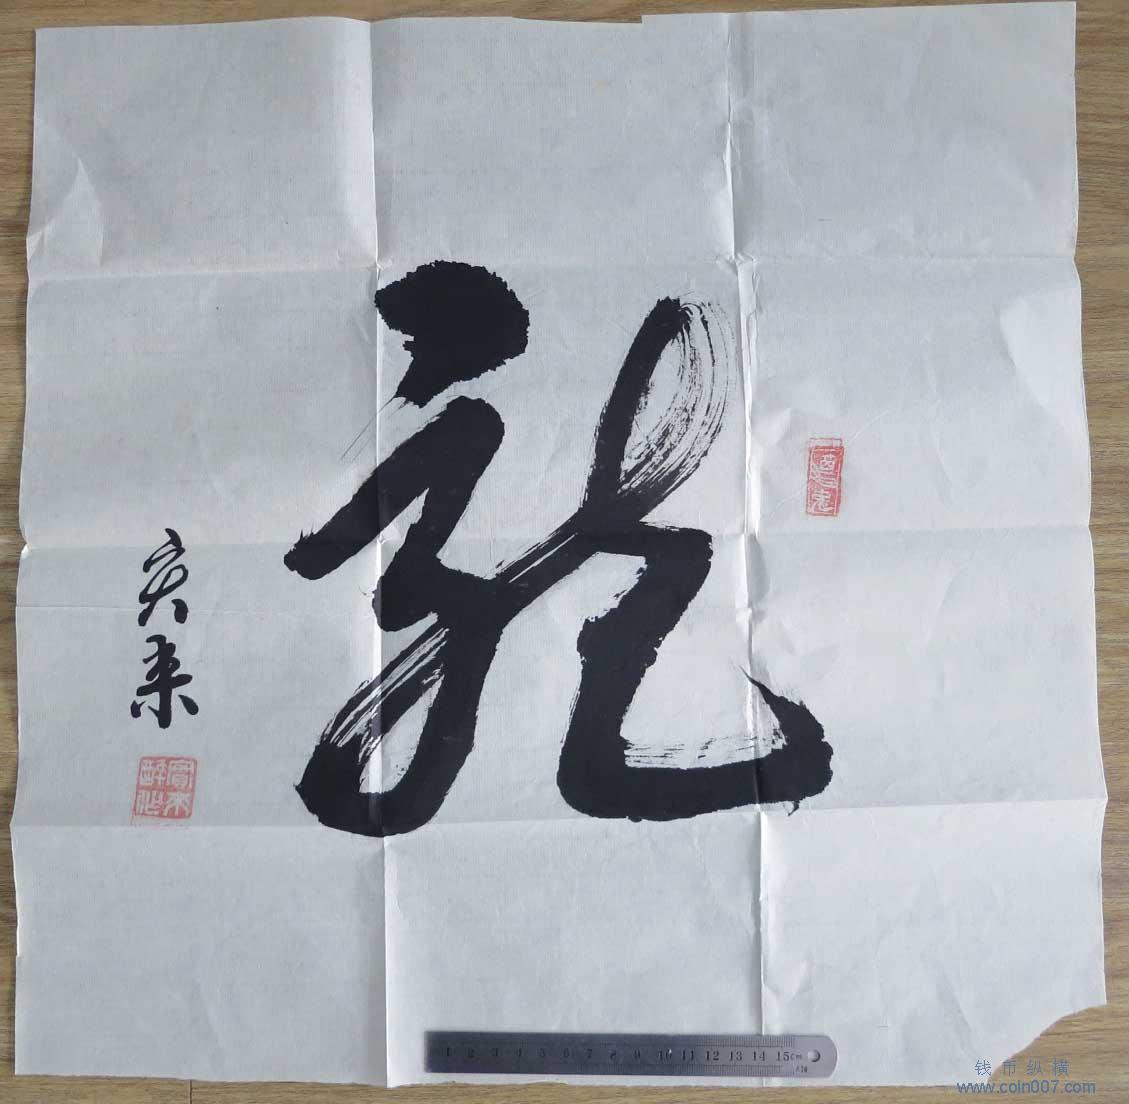 龍
寅来
1 2 3 4 5 6 7 8 9 10 11 12 13 14 15cm
钱币纵横
www.coin007.com